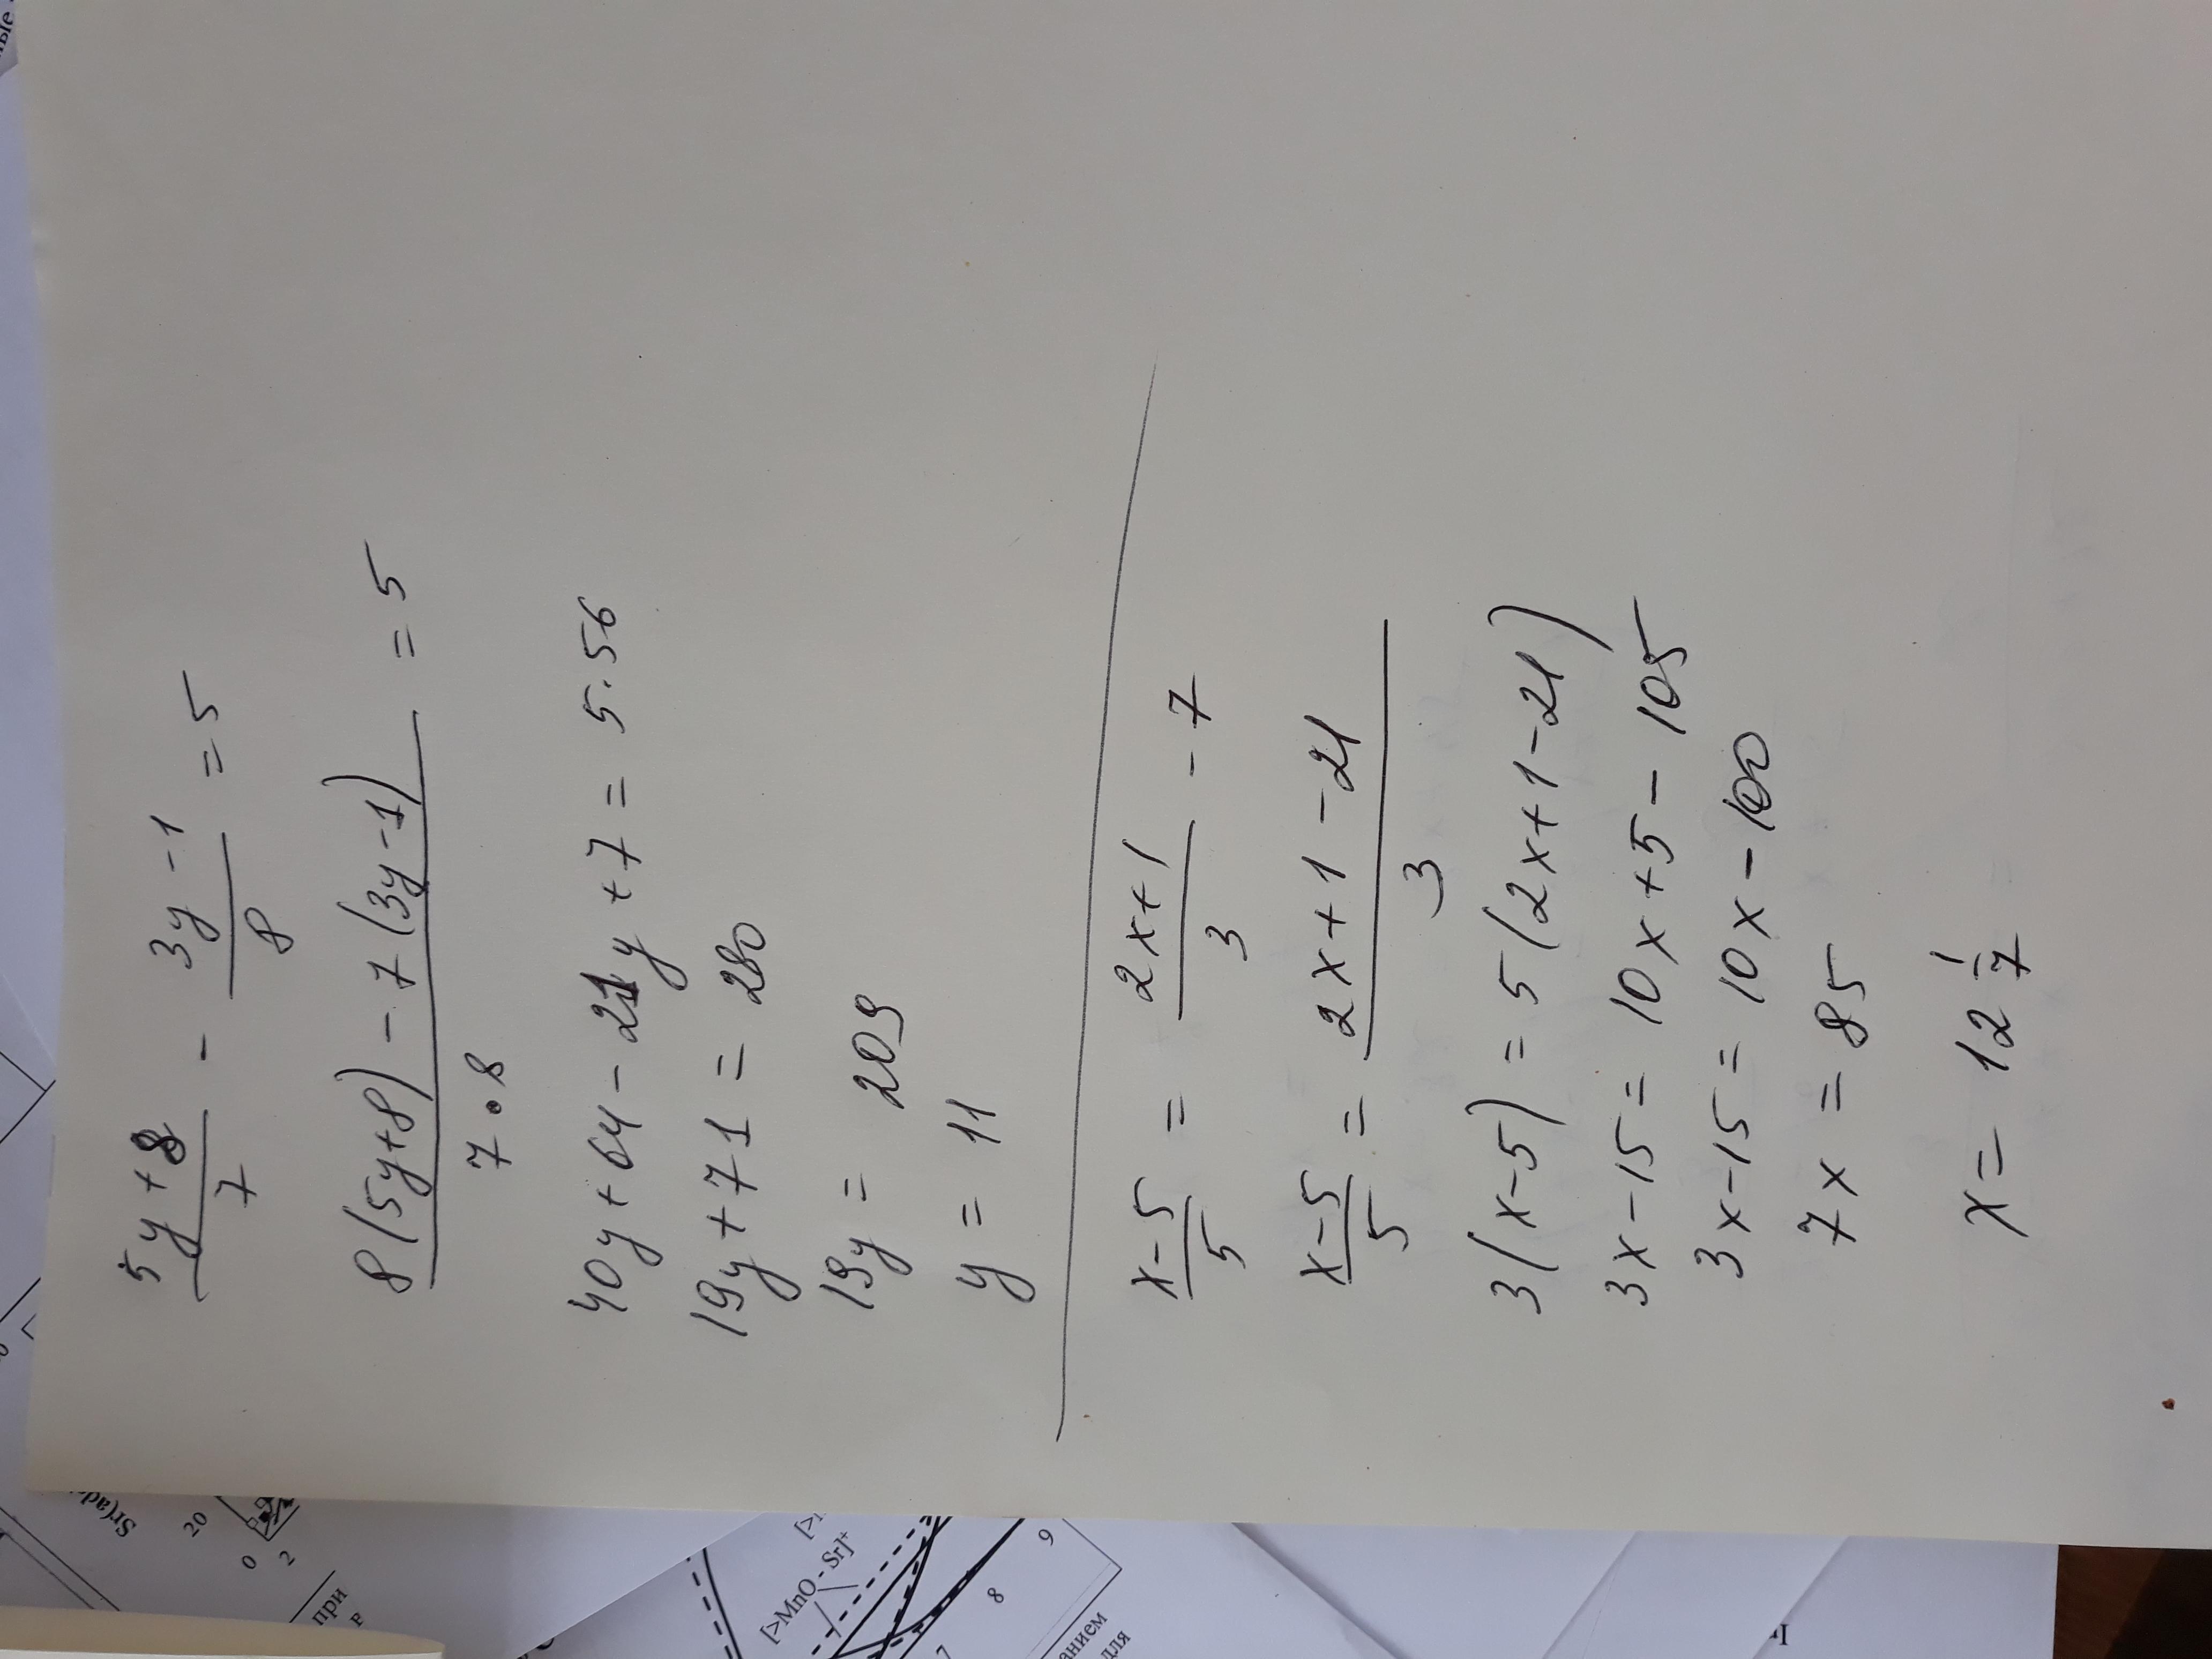 (5y+8)/7 - (3y-1)/8 = 5
(8(5y+8) - 7(3y-1))/(7·8) = 5
40y+64-21y+7 = 5·56
19y+71 = 280
19y = 209
y = 11
(x-5)/5 = (2x+1)/3 - 7
(x-5)/5 = (2x+1-21)/3
3(x-5) = 5(2x+1-21)
3x-15 = 10x+5-105
3x-15 = 10x-100
7x = 85
x = 12 1/7
20
0
2
при
[>MnO - Sr]⁺
7
8
9
анием
для